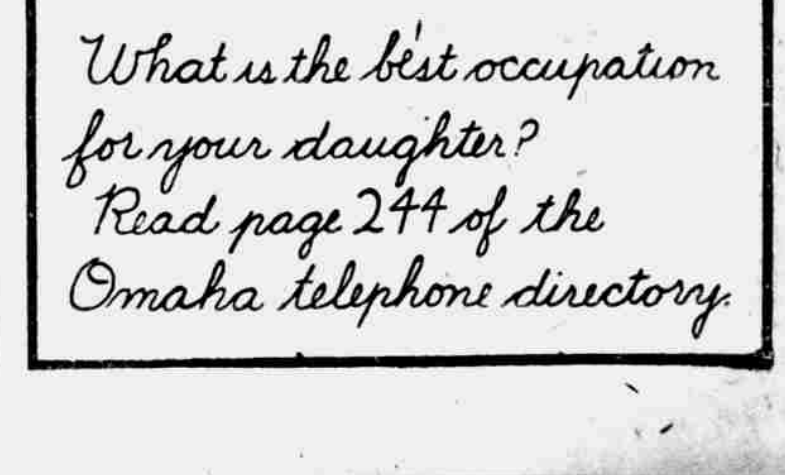 What is the best occupation
for your daughter?
Read page 244 of the
Omaha telephone directory.